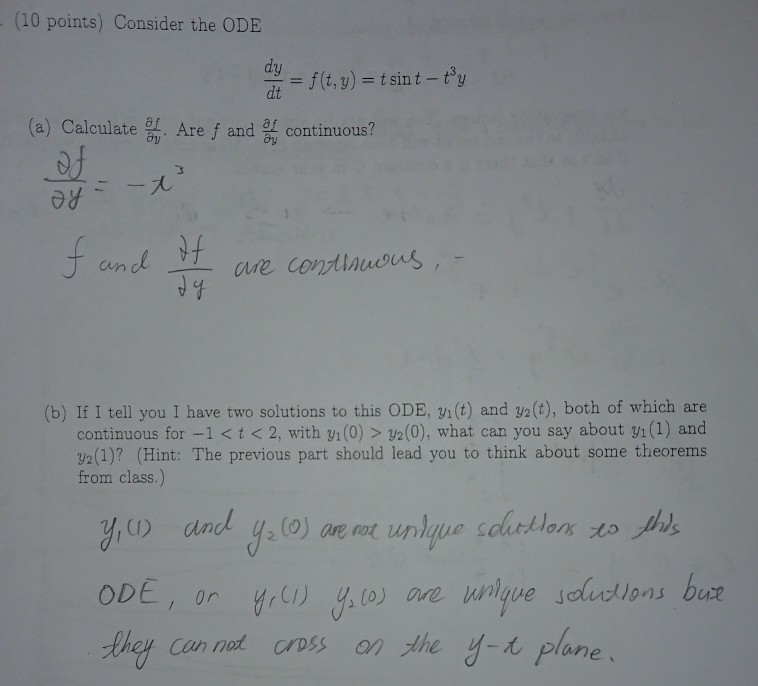 (10 points) Consider the ODE
dy/dt = f(t, y) = t sin t − t³y
(a) Calculate ∂f/∂y. Are f and ∂f/∂y continuous?
∂f/∂y = −t³
f and ∂f/∂y are continuous.
(b) If I tell you I have two solutions to this ODE, y₁(t) and y₂(t), both of which are
continuous for −1 < t < 2, with y₁(0) > y₂(0), what can you say about y₁(1) and
y₂(1)? (Hint: The previous part should lead you to think about some theorems
from class.)
y₁(1) and y₂(0) are not unique solutions to this
ODE, or y₁(1) y₂(0) are unique solutions but
they can not cross on the y-t plane.